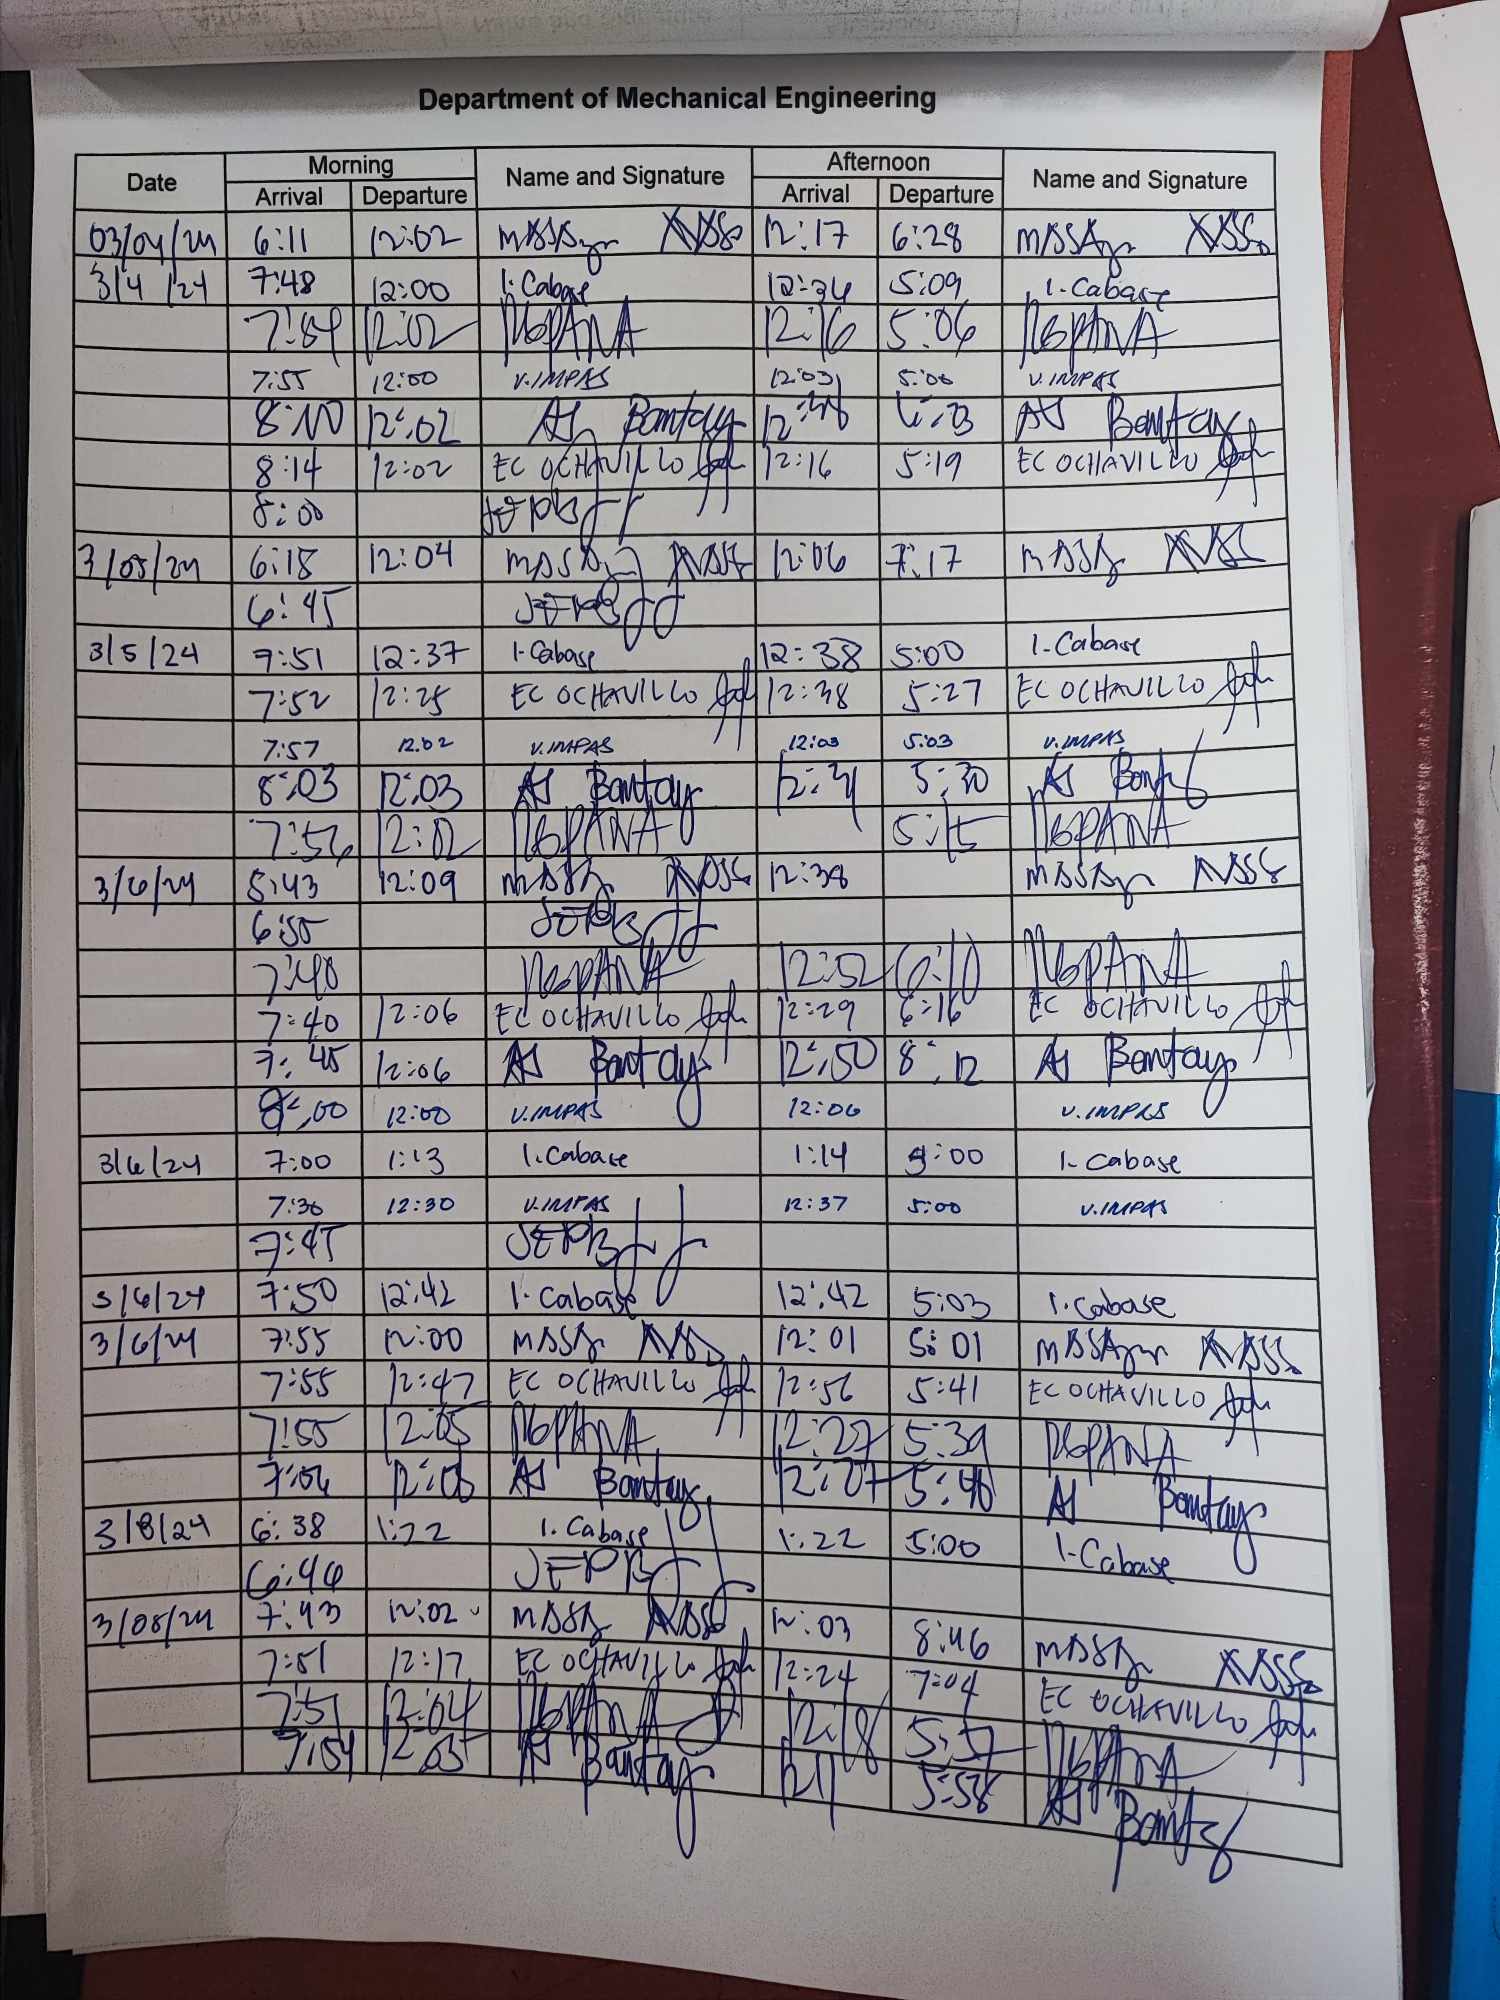 Department of Mechanical Engineering
Date Morning Name and Signature Afternoon Name and Signature
Arrival Departure Arrival Departure
03/04/24 6:11 12:02 12:17 6:28
3/4/24 7:48 12:00 1. Cabase 12:34 5:09 1. Cabase
7:54 12:02 NGPANA 12:16 5:06 NGPANA
7:55 12:00 V. IMPAS 12:03 5:00 V. IMPAS
8:00 12:02 AJ Bontay AJ Bontay
8:14 12:02 EC OCHAVILLO 12:16 5:19 EC OCHAVILLO
8:00 JEPB
3/05/24 6:18 12:04 12:06 7:17
6:45 JEPB
3/5/24 7:51 12:37 1. Cabase 12:38 5:00 1. Cabase
7:52 12:25 EC OCHAVILLO 12:38 5:27 EC OCHAVILLO
7:57 12:02 V. IMPAS 12:03 5:03 V. IMPAS
8:03 12:03 AJ Bontay 12:31 5:30 AJ
7:56 12:02 NGPANA 5:15 NGPANA
3/6/24 5:43 12:09 12:38
6:55 JEPB
7:40 NGPANA 12:52 6:10 NGPANA
7:40 12:06 EC OCHAVILLO 12:29 6:16 EC OCHAVILLO
7:45 12:06 AJ Bontay 12:50 8:12 AJ Bontay
8:00 12:00 V. IMPAS 12:06 V. IMPAS
3/6/24 7:00 1:13 1. Cabase 1:14 5:00 1- Cabase
7:30 12:30 V. IMPAS 12:37 5:00 V. IMPAS
7:45 JEPB
3/6/24 7:50 12:42 1. Cabase 12:42 5:03 1. Cabase
3/6/24 7:55 12:00 12:01 5:01
7:55 12:47 EC OCHAVILLO 12:56 5:41 EC OCHAVILLO
7:55 12:05 NGPANA 12:27 5:39 NGPANA
7:06 12:06 AJ Bontay 12:07 5:40 AJ Bontay
3/8/24 6:38 1:22 1. Cabase 1:22 5:00 1- Cabase
6:46 JEPB
3/08/24 7:43 12:02 12:03 8:46
7:51 12:17 EC OCHAVILLO 12:24 7:04 EC OCHAVILLO
7:51 12:04 NGPANA 12:18 5:37 NGPANA
7:54 12:05 AJ Bontay 5:58 AJ